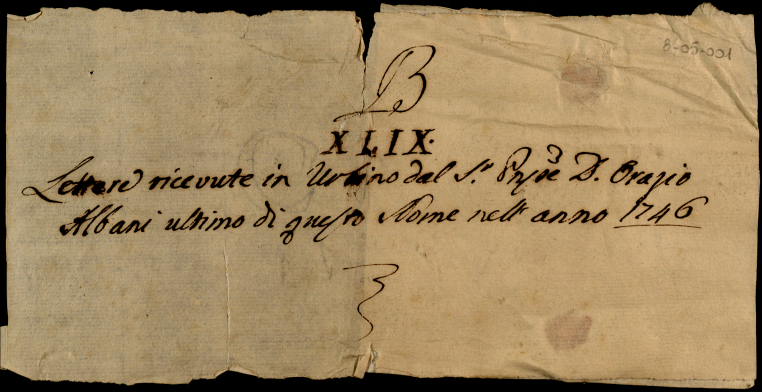 8-05-001
B
XLIX.
Lettere ricevute in Urbino dal S.r Pnpe D. Orazio
Albani ultimo di questo Nome nell' anno 1746